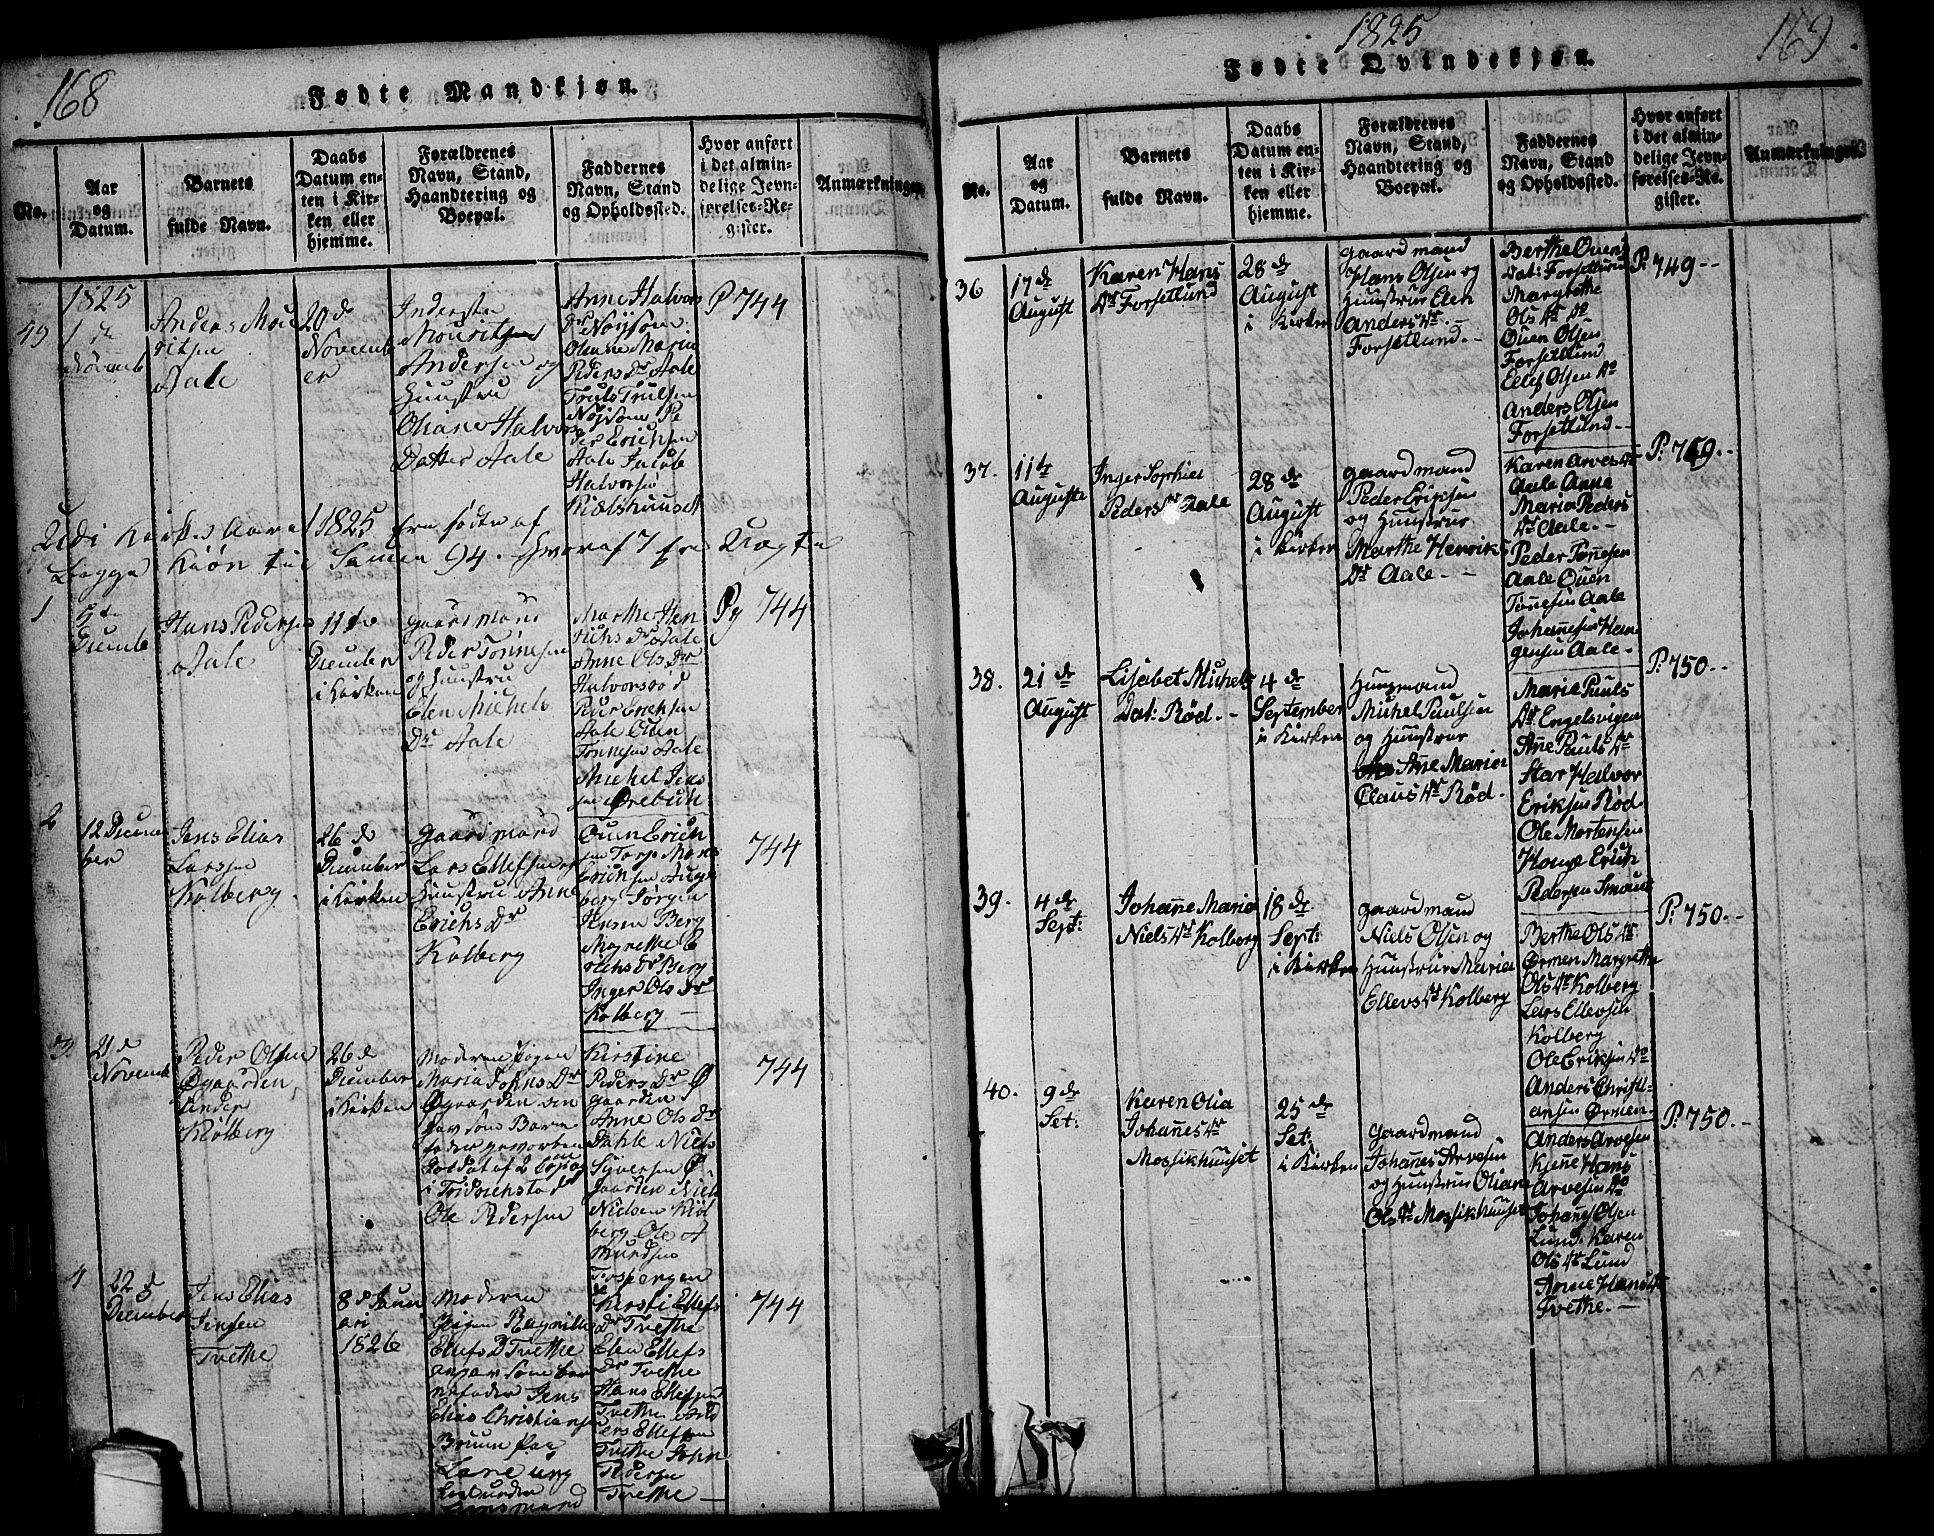 168
Fødte Mandkjøn.
No.
Aar
og
Datum.
Barnets
fulde Navn.
Daabs
Datum en-
ten i Kir-
ken eller
hjemme.
Forældrenes
Navn, Stand,
Haandtering og
Boepæl.
Faddernes
Navn, Stand
og Opholdssted.
Hvor anført
i det almin-
delige Jevn-
førelses-Re-
gister.
Anmærkninger.
49
1825
1 de
Novemb
Anders Mou
ritsen
Aale
20 de
Novemb
er
Inderste
Mouritsen
Andersen og
Huustru
Oliane Halvors
Datter Aale
Anne Halvors
Dr Nøysom
Olene Maria
Peders Dr Aale
Trulsen
Nøisom Pe
der Erichsen
Aale Jacob
Halvorsen
P 744
Udi Kirkes Aaret 1825 Ere fødte af
Begge Kiøn til Samen 94. Hvoraf 7 ere Uægte
1
5 de
Decemb
Hans Pedersen
Aale
11 te
December
i Kirken
Gaardmand
Peder Tønnesen
og Huustru
Elen Michels
Dr Aale
Marthe Hen
richs Dr Aale
Anne Ols Dr
Halvorsrød
Peder Erichsen
Aale Ouen
Tønnesen Aale
Michel Jens
sen Ørebech
Pg 744
2
12 Decem
ber
Jens Elias
Larssen
Kolberg
26 de
December
i Kirken
Gaardmand
Lars Ellefsen og
Huustru Anne
Erichs Dr
Kolberg
Ouen Erich
sen Torp Mons
Erichsen
berg Jørgen
Jensen Berg
Magrethe E
richs Dr Berg
Inger Ols Dr
Kolberg
744
3
21 de
Novemb
Peder Olsen
Øgaarden
under
Kiølberg
26 de
December
i Kirken
Moderen Pigen
Maria Johns Dr
Øgaarden
som Barne
fader
Soldat af 2
i Fridrichstad
Ole Pedersen
Kirstine
Peders Dr Ø
gaarden
Anne Ols Dr
Dahle Niels
Syversen Ø
gaarden Niels
Nielsen Kiøl
berg Ole A
mundsen
744
4
22
December
Jens Elias
Jensen
Tvethe
8 de Janu
ari
1826
Moderen
Pigen Ragnille
Ellefs D Tvethe
som bar
nefader Jens
Elias Christiansen
Kirsti Ellefs
Dr Tvethe
Elen Ellefs
Dr Tvethe
Hans Ellefsen
Tvethe And
ers Ellefsen
Tvethe John
Pedersen
Tvethe
744
1825
169
Fødte Qvindekjøn.
No.
Aar
og
Datum.
Barnets
fulde Navn.
Daabs
Datum en-
ten i Kir-
ken eller
hjemme.
Forældrenes
Navn, Stand,
Haandtering og
Boepæl.
Faddernes
Navn, Stand
og Opholdssted.
Hvor anført
i det almin-
delige Jevn-
førelses-Re-
gister.
Anmærkninger.
36
17 de
August
Karen Hans
Dr Forsetlund
28 de
August
i Kirken
Gaardmand
Hans Olsen og
Huustrue Elen
Anders Dr
Forsetlund.
Berthe Ouens
Dat: Forsetlund
Margrethe
Ols Dr Do
Ouen Olsen
Forsetlund
Ellef Olsen Do
Anders Olsen
Forsetlund
P. 749
37.
11te
August
Inger Sophie
Peders Dr Aale
28 de
August
i Kirken
Gaardmand
Peder Eriksen
og Huustrue
Marthe Henriks
Dr Aale.
Karen Arves Dr
Aale Anne
Maria Peders
Dr Aale.
Peder Tønnesen
Aale Ouen
Tønnesen Aale
Johannesen
Aale
P. 749
38.
21 de
August
Lisabet Michels
Dat: Rød.
4 de
September
i Kirken
Huusmand
Michel Paulsen
og Huustrue
Ane Marie
Claus Dr Rød.
Marie Pauls
Dr Engelsvigen
Ane Pauls Dr
Star Halvor
Eriksen Rød
Ole Mortensen
Hauge Erich
Pedersen Smaue
P. 750
39.
4 de
Sept:
Johanne Marie
Niels Dr Kolberg
18 de
Sept:
i Kirken
Gaardmand
Niels Olsen og
Huustrue Maria
Ellevs Dr Kolberg
Berthe Ols Dr
Ørmen Margrethe
Ols Dr Kolberg
Lars Ellevsen
Kolberg
Ole Eriksen Do
Anders Christi-
ansen Ørmen
P. 750
40.
9 de
Set:
Karen Olia
Johannes Dr
Mossikhuuset
25 de
Set:
i Kirken
Gaardmand
Johannes Arvesen
og Huustrue Oliane
Ols Dr Mossikhuuset
Anders Arvesen
Kjenne Hans
Arvesen Do
Johannes Olsen
Lund Karen
Ols Dr Lund
Anne Hans Dr
Tvethe.
P. 750